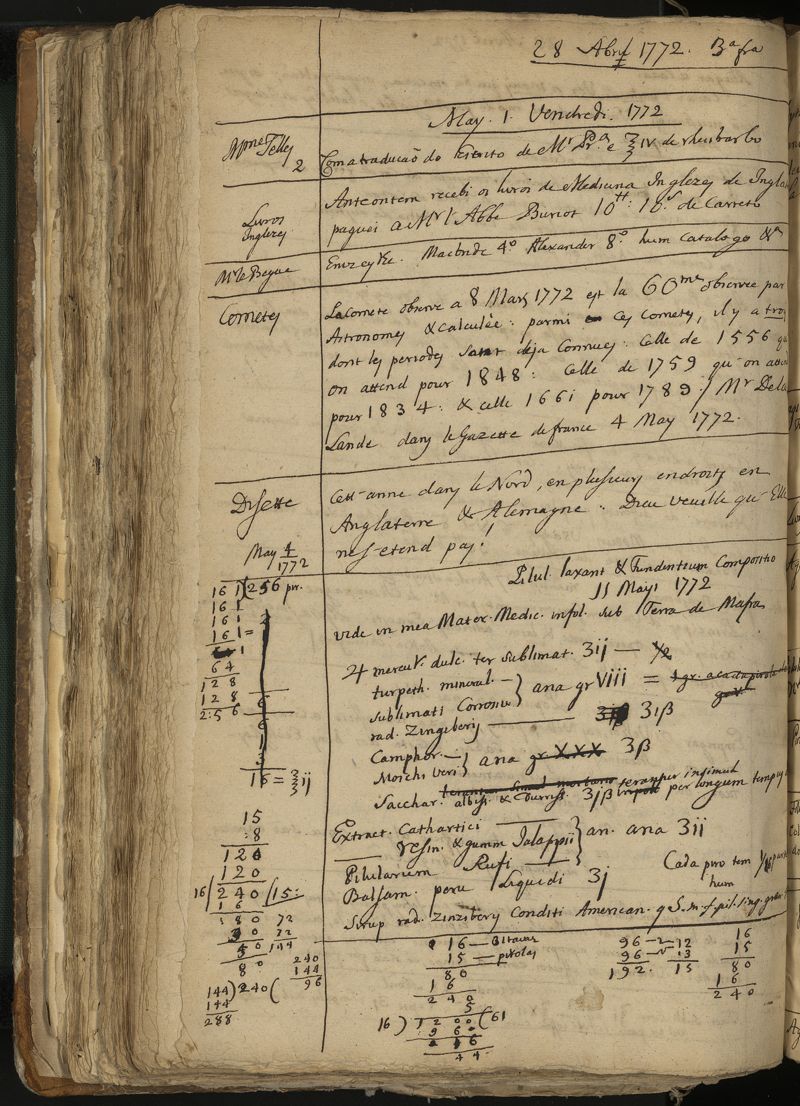 28 Abril 1772. 3ª fra
May. 1. Vendredi. 1772
Mme Telles
2
Com a traducaõ do escrito de Mr. e ℥ IV de rheubarbo
Livros
Inglezes
Anteontem recebi os livros de Medecina Inglezes de
paguei a Mr l'Abbé 10 tt: 10 s de Carreto
Mr le Begue
Macbride 4º Alexander 8º hum Catalogo &
Cometes
La Comete observe a 8 Mars 1772 est la 60me observée par
Astronomes & calculée: parmi ces cometes, il y a troi
dont les periodes deja Connues: Celle de 1556 qu
on attend pour 1848: Celle de 1759 qu'on attend
pour 1834: & celle 1661 pour 1789 / Mr De la
Lande dans le Gazette de france 4 May 1772.
Disette
Cett'anne dans le Nord, en plusieurs endroits en
Anglaterre & Alemagne: Dieu veuille qu'Elle
ne s'etend pas!
May 4
1772
Pilul. laxant & Fundentium Compositio
11 Mayi 1772
vide in mea Mater. Medic. infol. sub Terra de Mafra
♃ mercur. dulc. ter sublimat. 3ij — ½
turpeth. mineral. —
Sublimati Corrosiv. } ana gr VIII =
rad. Zingiberis — 3iß
Camphor. —
Moschi veri } ana gr XXX 3ß
terantur insimul
Sacchar. albiss. & 3jß per longum tempus
Extract. Cathartici
— resin. & gumm Jalappii } an. ana 3ii
Pilularum Rufi —
Balsam. peru Liquidi 3j
Cada
hum
Sirup rad. Zinziberis Conditi American. q S. m. f. pil. sing. gran
161 (256 pr.
161
161
161 =
64
128
128
2:56
16 = ℥ij
15
:8
120
120
16 / 240 / 15:
16
:80 72
30 72
50 144
80
240
144
96
144 ) 240 (
144
288
16 — oitavas
15 — pirolas
80
16
240
5
16 ) 1200 ( 61
96
216
44
96 — 12
96 — 13
192. 15
16
15
80
16
240